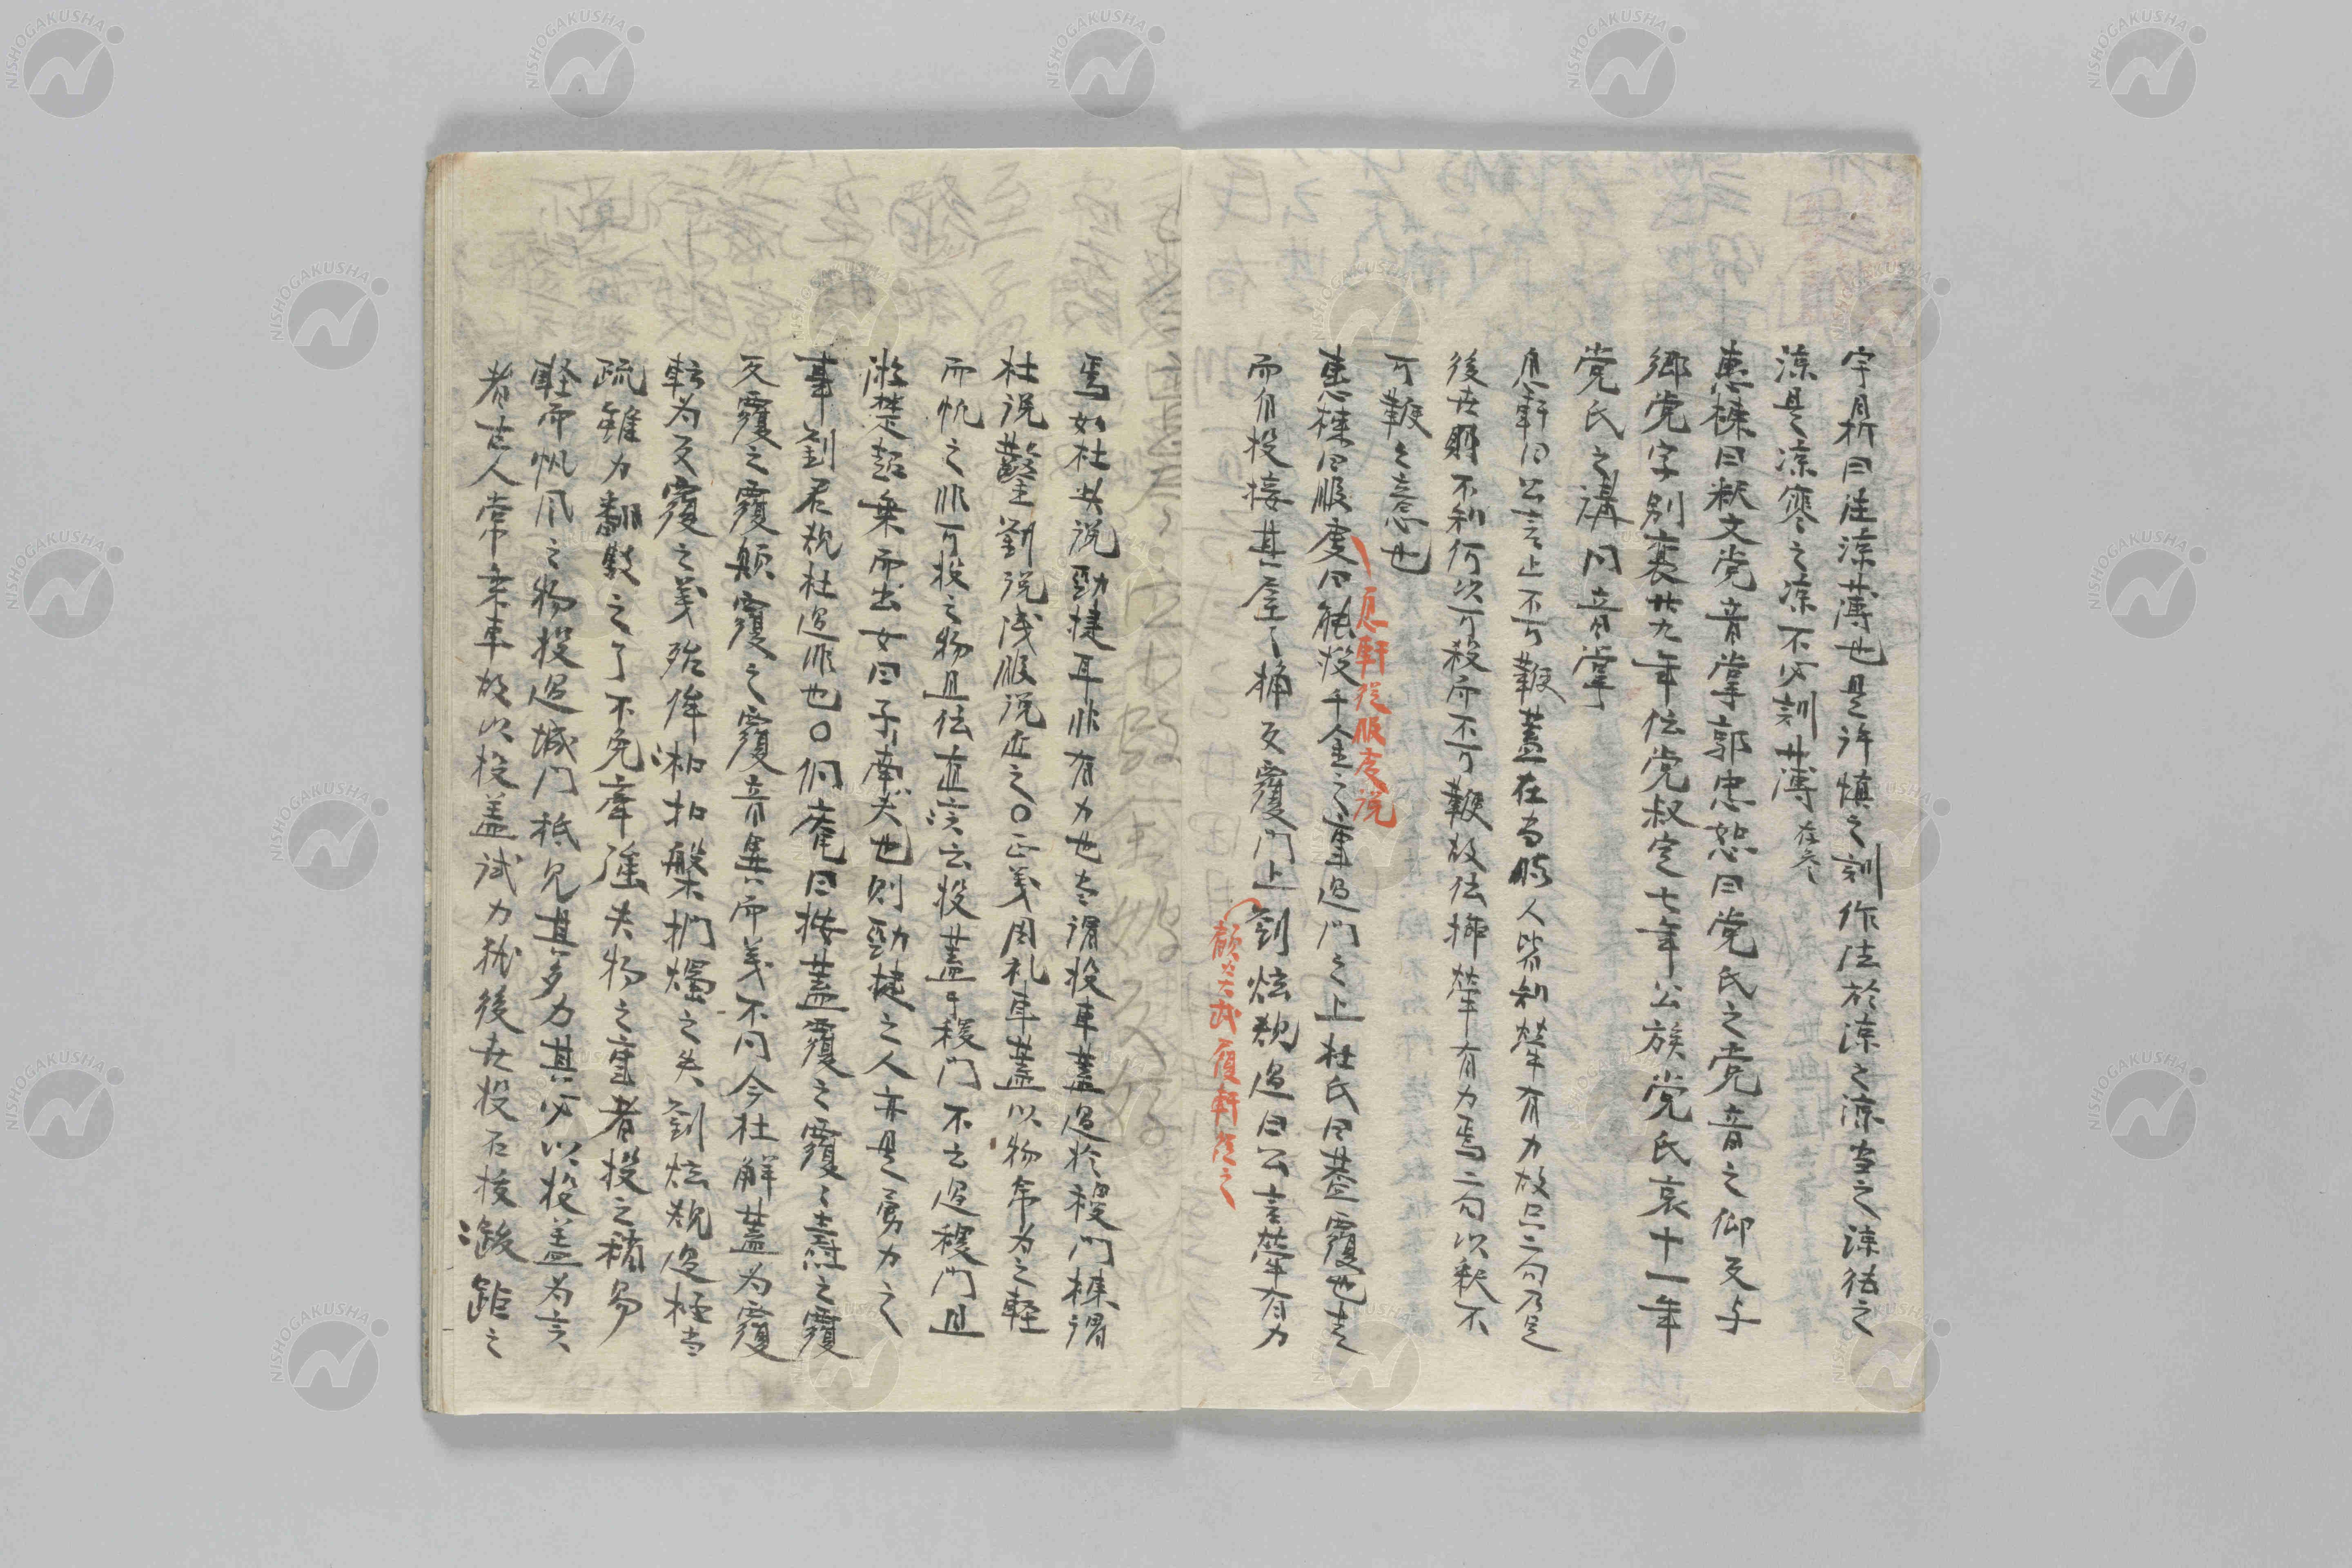 字月析曰注涼薄也是許慎之訓作法於涼之涼虫之涼德之
涼是涼寒之涼不必訓薄 在參
惠棟曰釈文党音掌郭忠恕曰党氏之党音之仰反与
郷党字別襄廿九年伝党叔定七年公族党氏哀十一年
党氏之溝同音掌
息軒曰公言上不可鞭蓋在当時人皆利犖有力故只二句乃足
後世財不利何以可殺而不可鞭故伝挿犖有力焉二句以釈不
可鞭之意也
息軒從服虔説
惠棟曰服虔曰能投千金之重過門之上杜氏曰蓋覆也走
而自投接其屋之桷反覆門上劉炫規過曰公言犖有力
顧炎武 履軒従之
焉如杜此説勁捷耳非有力也当謂投車蓋過於稷門棟謂
杜説鑿劉説浅服説近之〇正義周礼車蓋以物帛為之軽
而帆之非可投之物且伝直云投蓋于稷門不云過稷門且
游楚超乗而出女曰子南夫也則勁捷之人亦是勇力之
事劉君規杜過非也〇侗庵曰按蓋覆之覆之義之覆
反覆之覆顛覆之覆音異而義不同今杜解蓋為覆
転為反覆之義殆侔淆扣槃捫燭之失劉炫規過極当
疏雖力翻駁之了不免牽強夫物之重者投之稍易
軽而帆風之物投過城門祗見其多力其必以投蓋為言
者古人常乗車故以投蓋試力猶後世投石抜𨁝距之